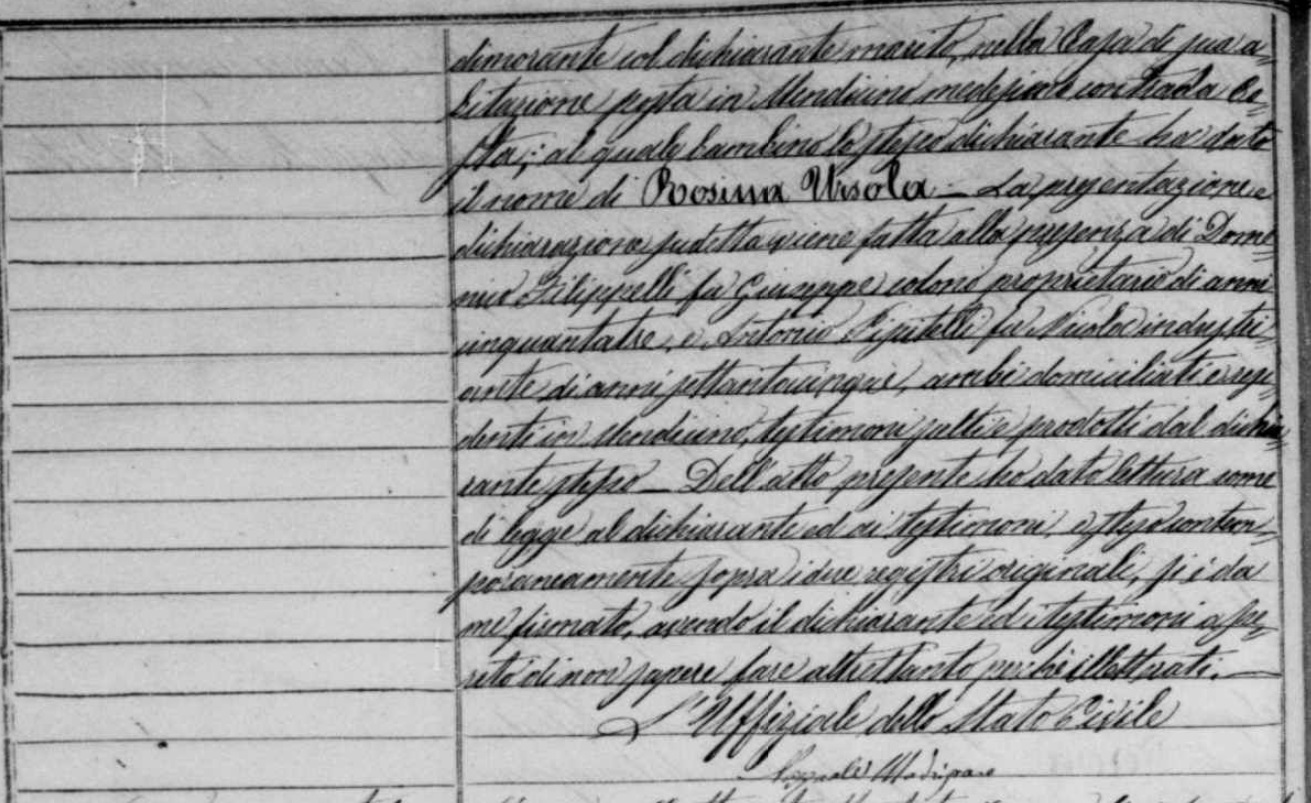 dimorante col dichiarante marito, nella Casa di sua a-
bitazione posta in Mendicino medesimo contrada
sta; al quale bambino lo stesso dichiarante ha dato
il nome di Rosina Ursola — La presentazione e
dichiarazione sudetta viene fatta alla presenza di Dome-
nico Filippelli fu Giuseppe colono proprietario di anni
cinquantatre, e Antonio fu Nicola industri-
ante di anni settantacinque, ambi domiciliati e resi-
denti in Mendicino, testimoni scelti e prodotti dal dichia-
rante stesso — Dell'atto presente ho dato lettura come
di legge al dichiarante ed ai testimoni, e steso contem-
poraneamente sopra i due registri originali, si è da
me firmato, avendo il dichiarante ed i testimoni asse-
rito di non sapere fare altrettanto perché illetterati. —
L'Uffiziale dello Stato Civile
Pasquale